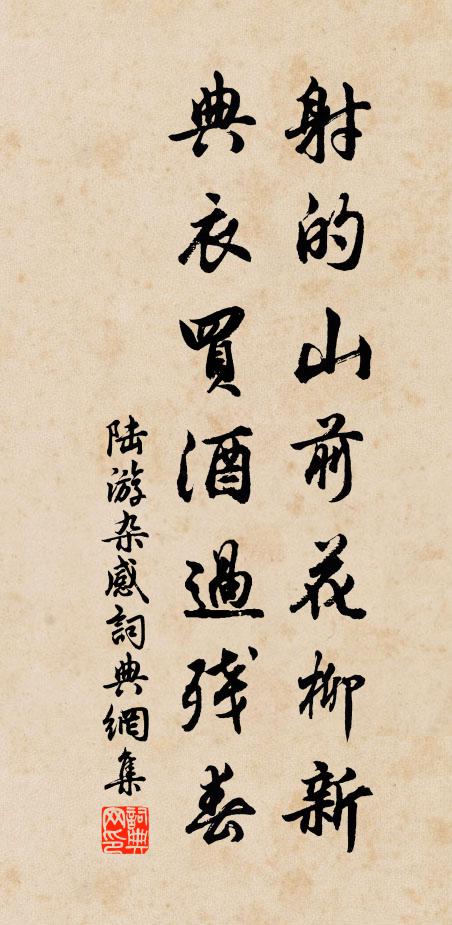 射的山前花柳新
典衣買酒過残春
陆游杂感詞典網集
詞典网印